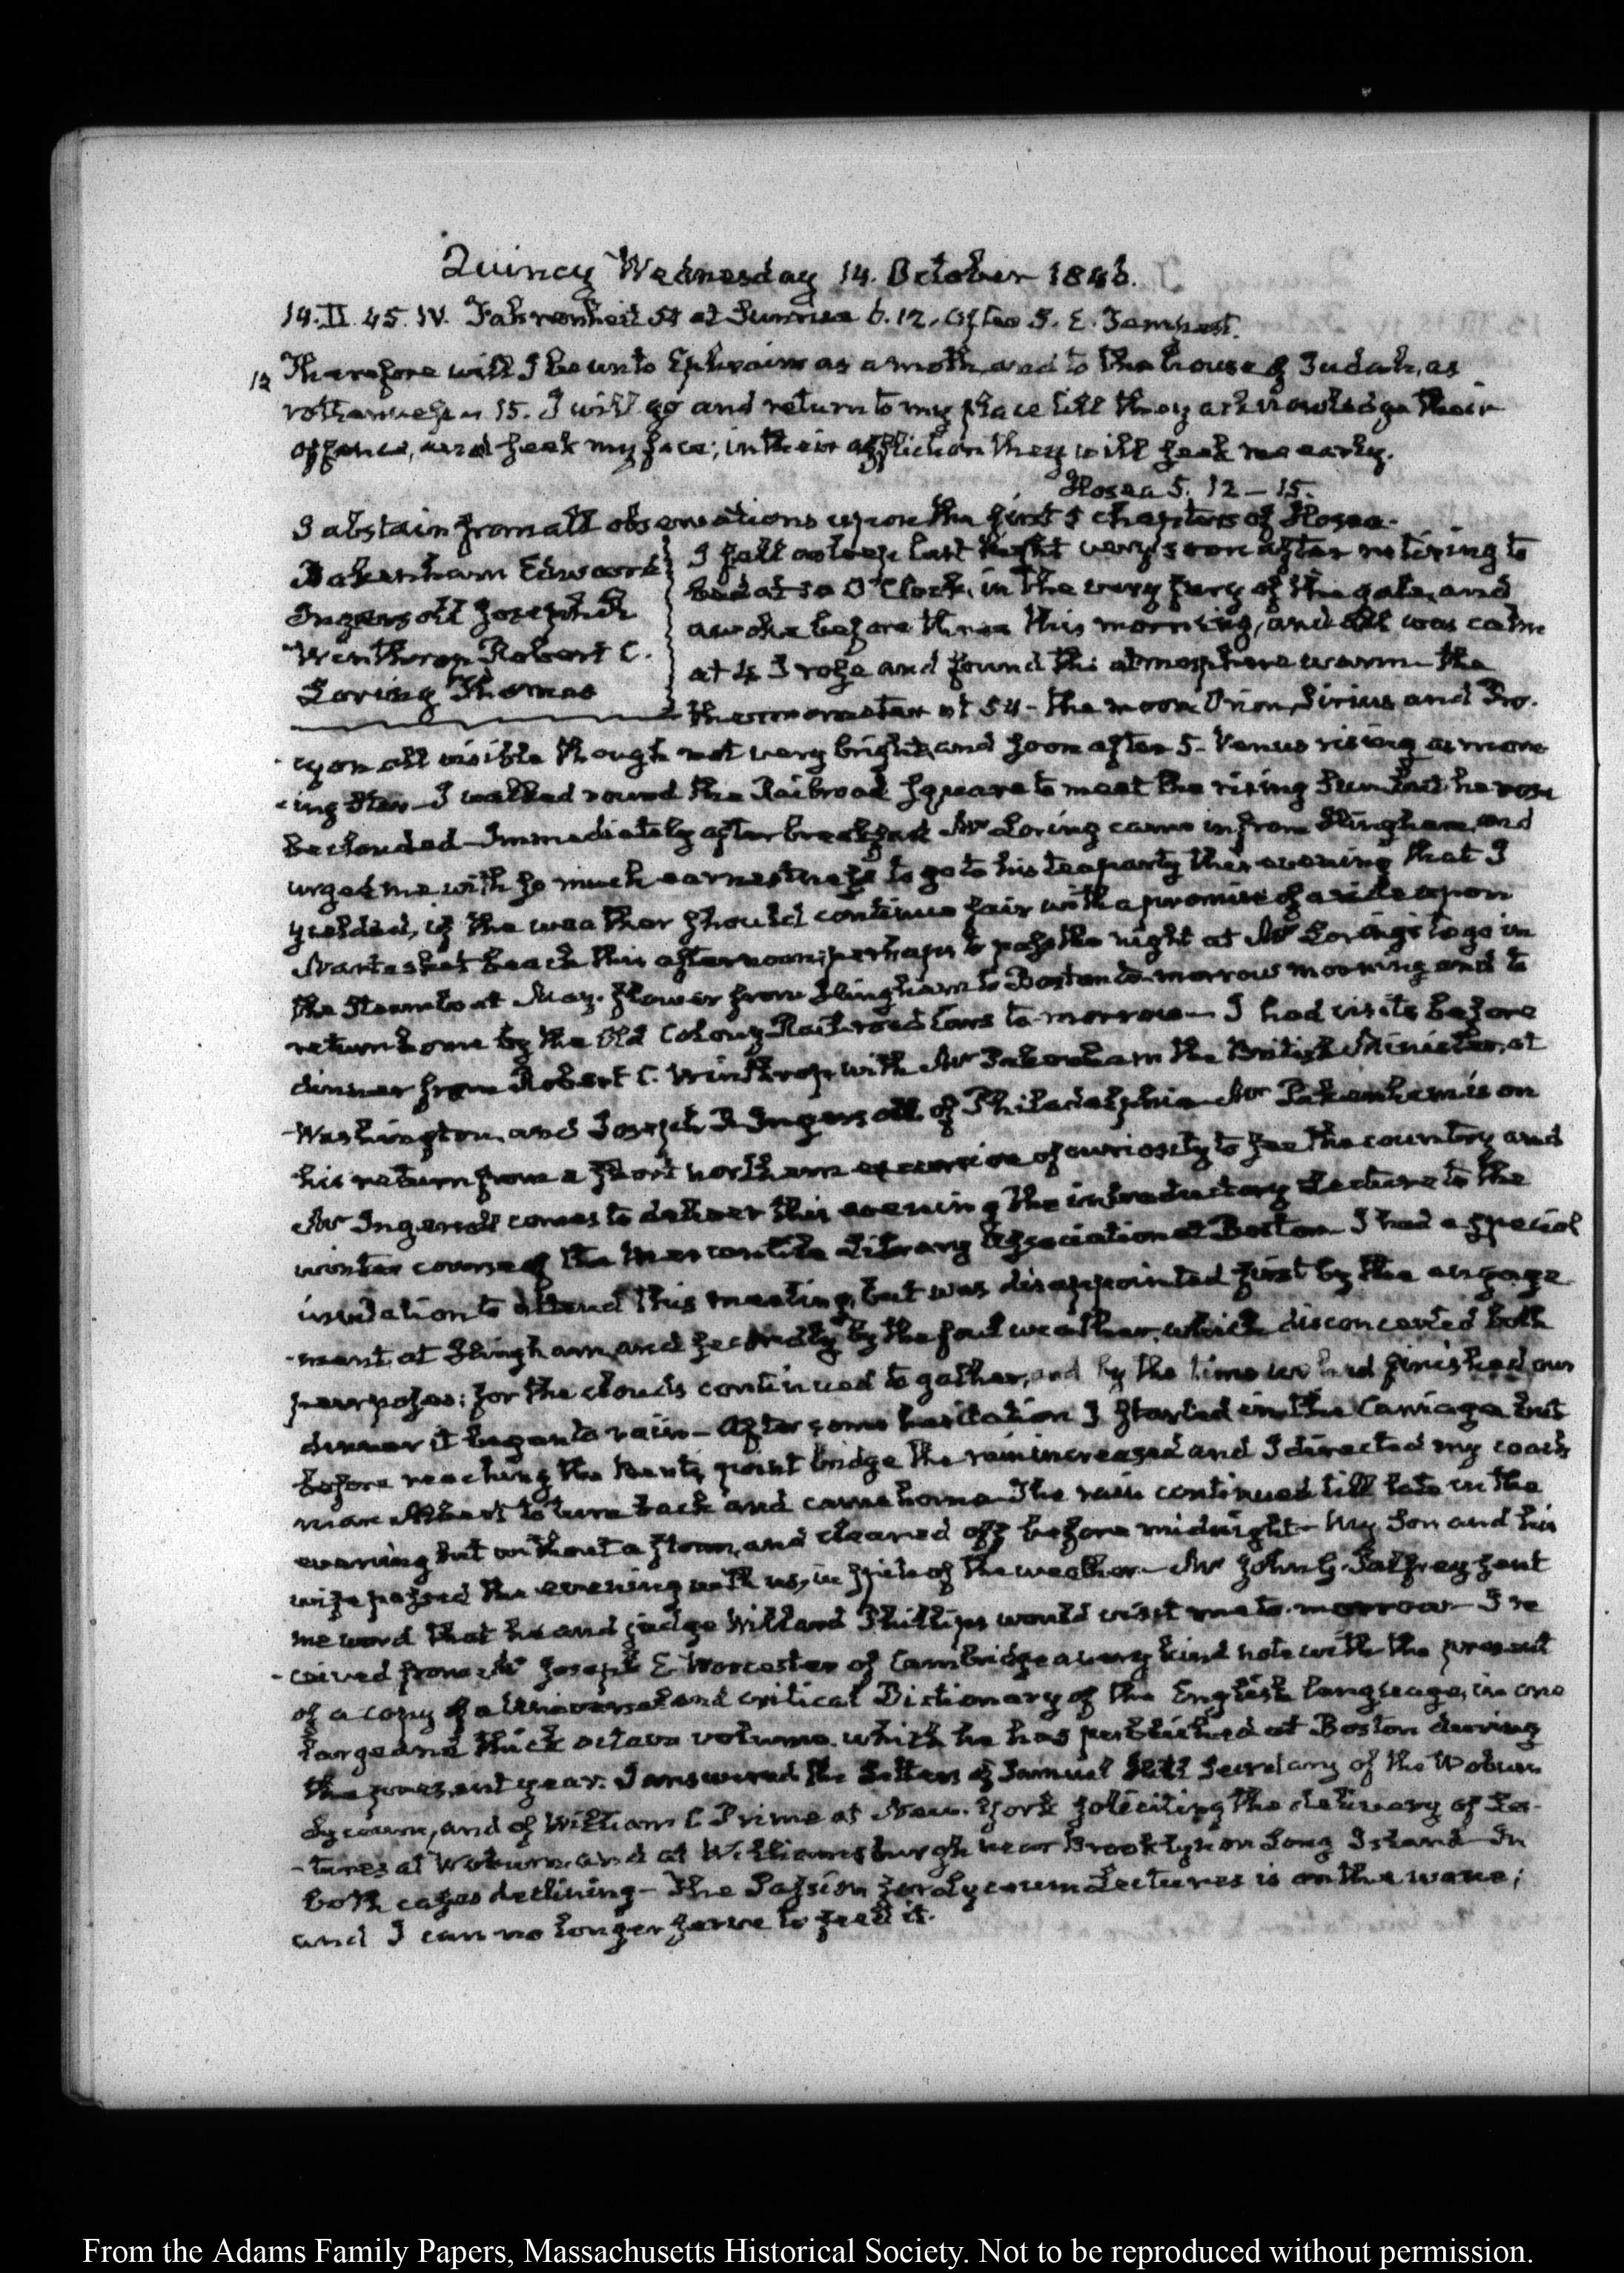 Quincy Wednesday 14. October 1846.
14. II. 45. IV. Fahrenheit 54 at Sunrise 6. 12. After S. E. Tempest.
12 Therefore will I be unto Ephraim as a moth, and to the house of Judah, as
rottenness 15. I will go and return to my place till they acknowledge their
offence, and seek my face; in their affliction they will seek me early.
Hosea 5. 12 – 15.
I abstain from all observations upon the first 5 chapters of Hosea.
Pakenham Edward
Ingersoll Joseph R
Winthrop Robert C.
Loring Thomas
I fell asleep last Night very soon after retiring to
bed at 10 O'Clock, in the very fury of the gale, and
awoke before three this morning, and all was calm
at 4 I rose and found the atmosphere warm the
thermometer at 54 - the moon Orion, Sirius and Pro-
-cyon all visible though not very bright, and soon after 5. Venus rising as morn
-ing star – I walked round the Railroad square to meet the rising Sun but he rose
beclouded – Immediately after breakfast Mr Loring came in from Hingham, and
urged me with so much earnestness to go to his tea party this evening that I
yielded, if the weather should continue fair with a promise of a ride upon
Nantasket beach this afternoon; perhaps to pass the night at Mr Loring's to go in
the Steamboat May-flower from Hingham to Boston to-morrow morning and to
return home by the Old Colony Rail road Cars to-morrow – I had visits before
dinner from Robert C. Winthrop, with Mr Pakenham the British Minister, at
Washington, and Joseph R Ingersoll of Philadelphia – Mr Pakenham is on
his return from a short northern excursion of curiosity to see the country and
Mr Ingersoll comes to deliver this evening the introductory Lecture to the
winter course of the Mercantile Library Association at Boston – I had a special
invitation to attend this meeting, but was disappointed first by the engage
-ment, at Hingham, and secondly by the foul weather, which disconcerted both
purposes; for the clouds continued to gather, and by the time we had finished our
dinner it began to rain – After some hesitation I started in the Carriage but
before reaching the point bridge the rain increased and I directed my coach
man Albert to turn back and came home – The rain continued till late in the
evening but without a storm, and cleared off before midnight – My Son and his
wife passed the evening with us, in spite of the weather – Mr John G. Palfrey sent
me word that he and judge Willard Phillips would visit me to-morrow – I re
-ceived from Mr Joseph E Worcester of Cambridge a very kind note with the present
of a copy of a Universal and critical Dictionary of the English language, in one
large and thick octavo volume, which he has published at Boston during
the present year. I answered the Letters of Samuel Secretary of the Woburn
Lyceum, and of William C Prime at New-York soliciting the delivery of Lec-
-tures at Woburn, and at Williamsburgh near Brooklyn on Long Island – In
both cases declining – The Passion for Lyceum Lectures is on the wane;
and I can no longer serve to feed it.
From the Adams Family Papers, Massachusetts Historical Society. Not to be reproduced without permission.